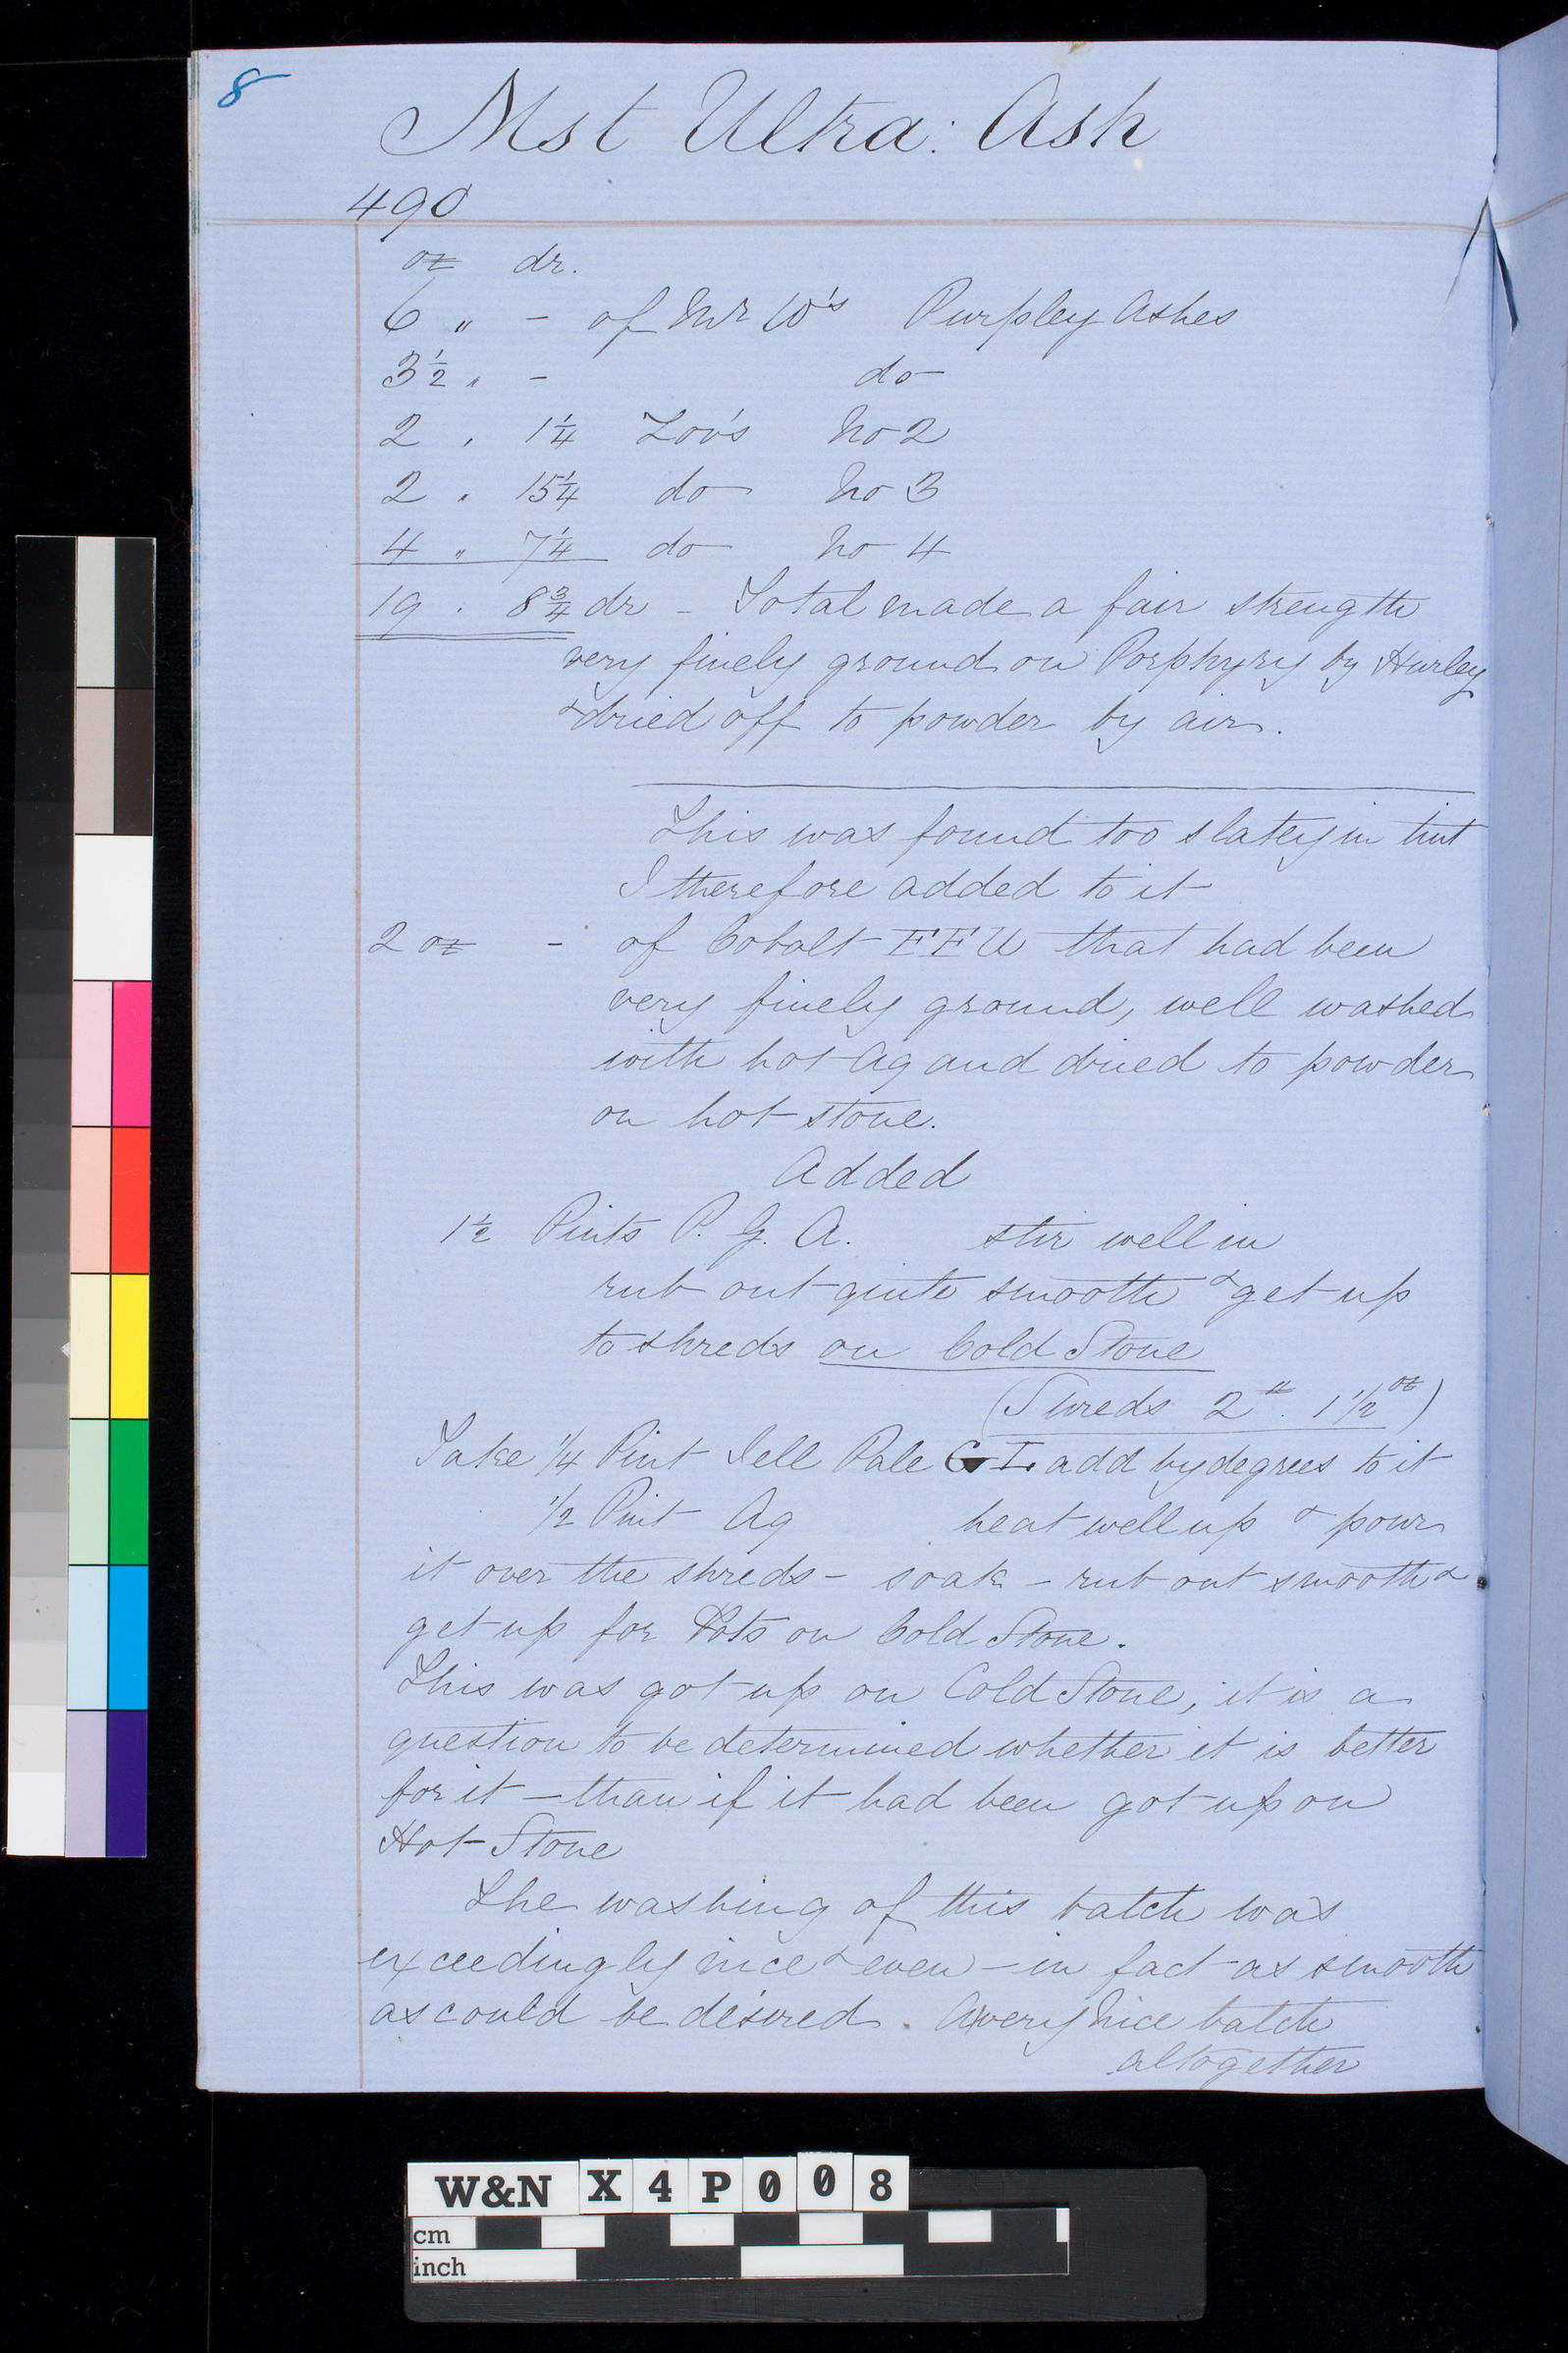 8
Mst Ultra: Ash
490
oz dr.
6 " - of Mr W's Purpley Ashes
3½ " - do
2 " 1¼ Zoo's No 2
2 " 15¼ do No 3
4 " 7¼ do No 4
19 . 8¾ dr - Total made a fair strength
very finely ground on Porphyry by Hurley
& dried off to powder by air.
This was found too slatey in tint
I therefore added to it
2 oz - of Cobalt FFU that had been
very finely ground, well washed
with hot Aq and dried to powder
on hot stone.
Added
1½ Pints P. G. A. stir well in
rub out quite smooth & get up
to shreds on Cold Stone
(Shreds 2 lb. 1 1/2 oz)
Take 1/4 Pint Jell Pale G L. add by degrees to it
1/2 Pint Aq heat well up & pour
it over the shreds - soak - rub out smooth &
get up for Pots on Cold Stone.
This was got up on Cold Stone, it is a
question to be determined whether it is better
for it - than if it had been got up on
Hot Stone
The washing of this batch was
exceedingly nice & even - in fact as smooth
as could be desired. A very nice batch
altogether
W&N X4P008
cm
inch